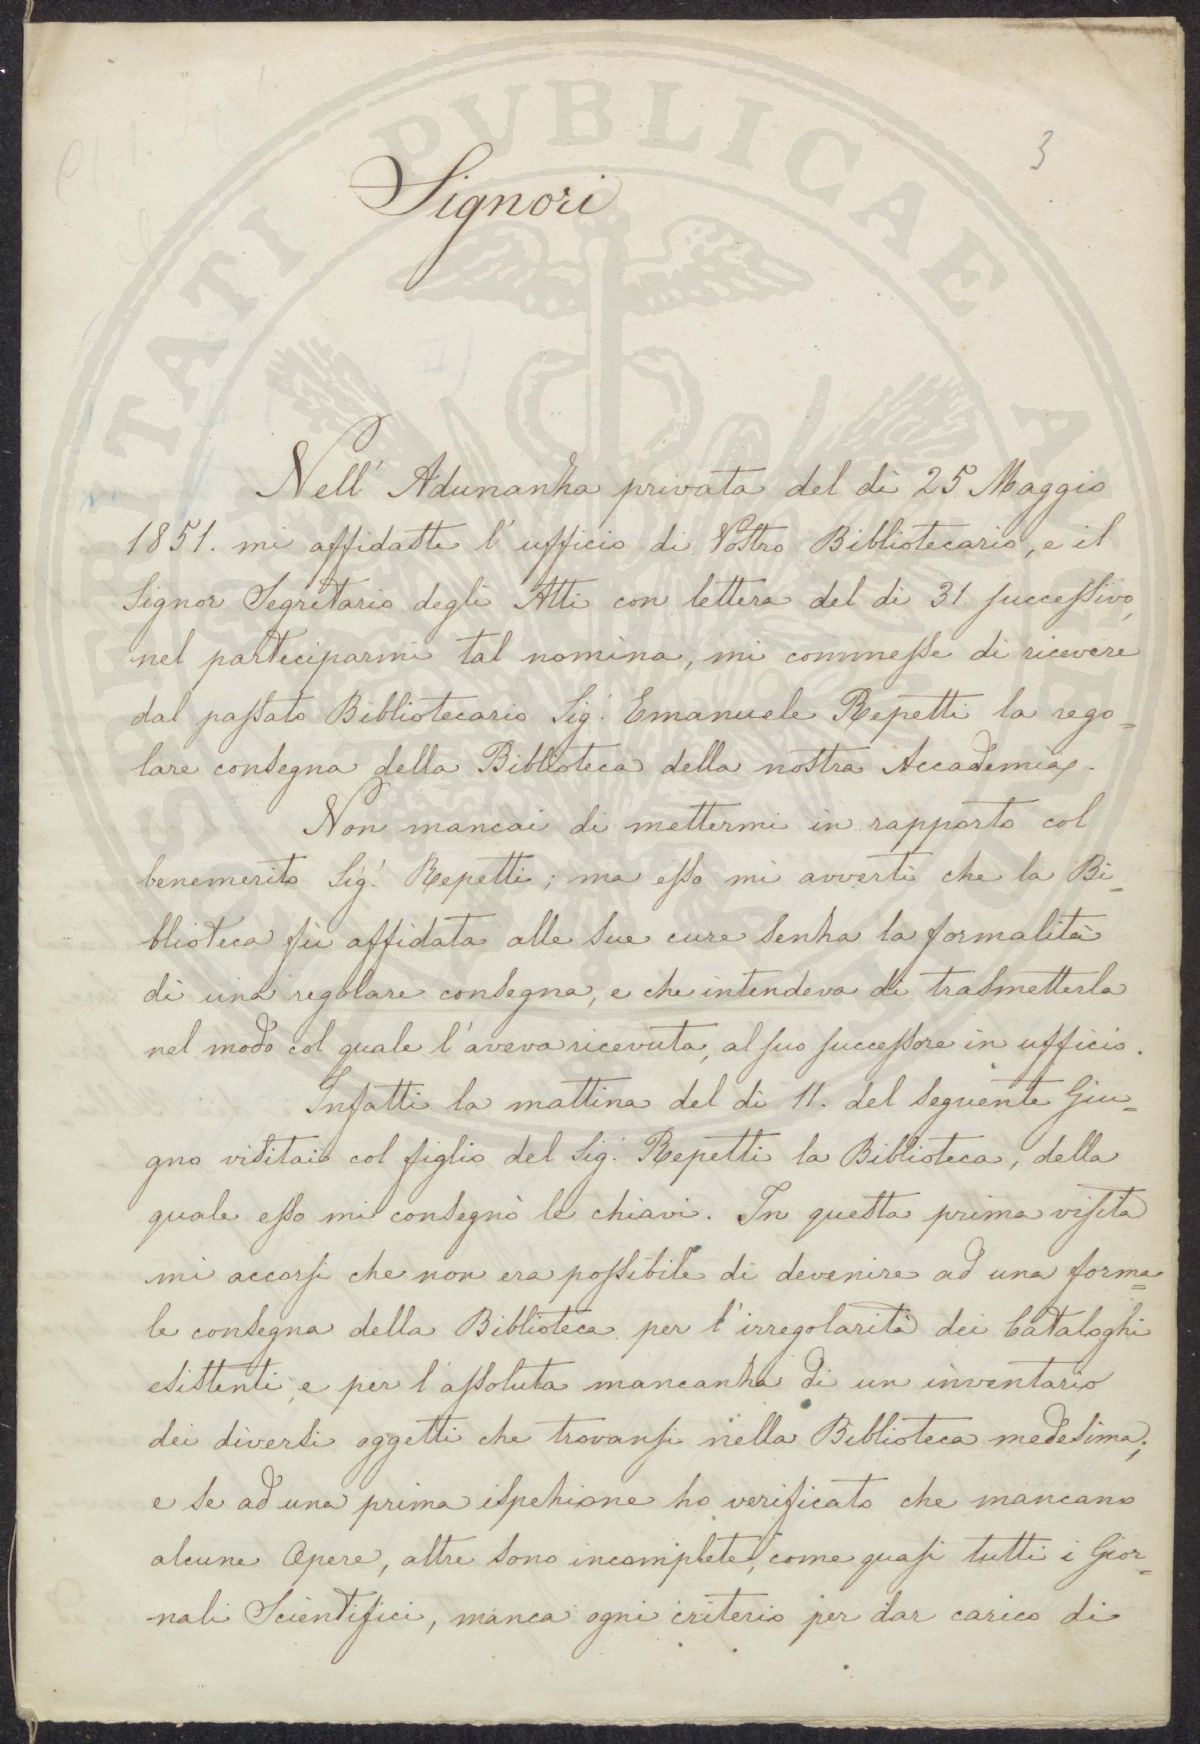 3
Signori
Nell' Adunanza privata del dì 25 Maggio
1851. mi affidaste l'ufficio di Vostro Bibliotecario, e il
Signor Segretario degli Atti con lettera del dì 31 successivo,
nel parteciparmi tal nomina, mi commesse di ricevere
dal passato Bibliotecario Sig. Emanuele Repetti la rego=
lare consegna della Biblioteca della nostra Accademia.
Non mancai di mettermi in rapporto col
benemerito Sig. Repetti; ma esso mi avvertì che la Bi=
blioteca fù affidata alle sue cure senza la formalità
di una regolare consegna, e che intendeva di trasmetterla
nel modo col quale l'aveva ricevuta, al suo successore in ufficio.
Infatti la mattina del dì 11. del seguente Giu=
gno visitai col figlio del Sig. Repetti la Biblioteca, della
quale esso mi consegnò le chiavi. In questa prima visita
mi accorsi che non era possibile di devenire ad una forma=
le consegna della Biblioteca per l'irregolarità dei Cataloghi
esistenti, e per l'assoluta mancanza di un inventario
dei diversi oggetti che trovansi nella Biblioteca medesima;
e se ad una prima ispezione ho verificato che mancano
alcune Opere, altre sono incomplete, come quasi tutti i Gior=
nali Scientifici, manca ogni criterio per dar carico di
PROSPERITATI PVBLICAE AVGENDAE